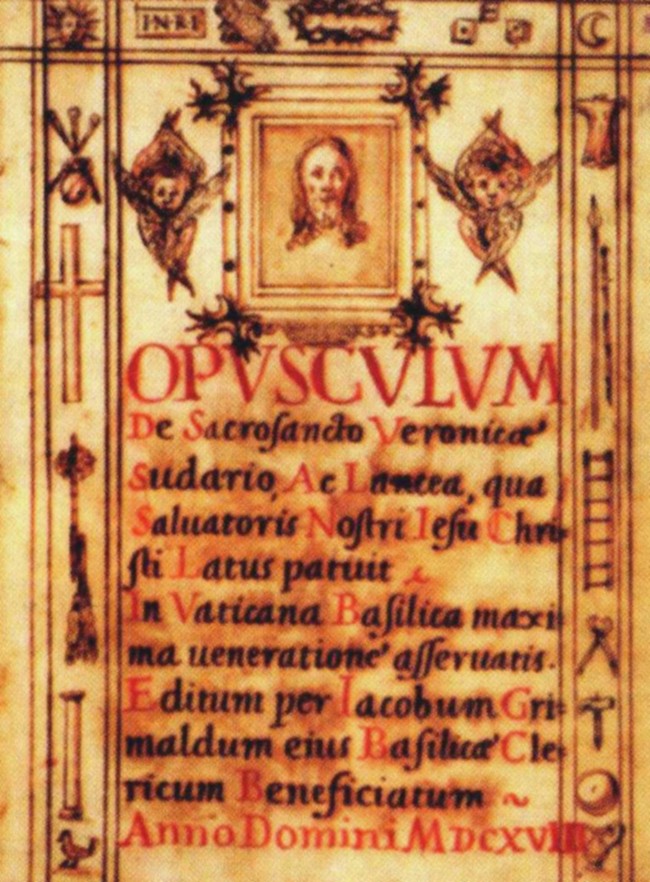 I·N·R·I
OPVSCVLVM
De Sacroſancto Veronicæ
Sudario, Ac Lancea, qua
Saluatoris Noſtri Ieſu Chri=
ſti Latus patuit
In Vaticana Baſilica maxi
ma ueneratione aſſeruatis.
Editum per Iacobum Gri=
maldum eius Baſilicæ Cle=
ricum Beneficiatum ~
Anno Domini MDCXVIII